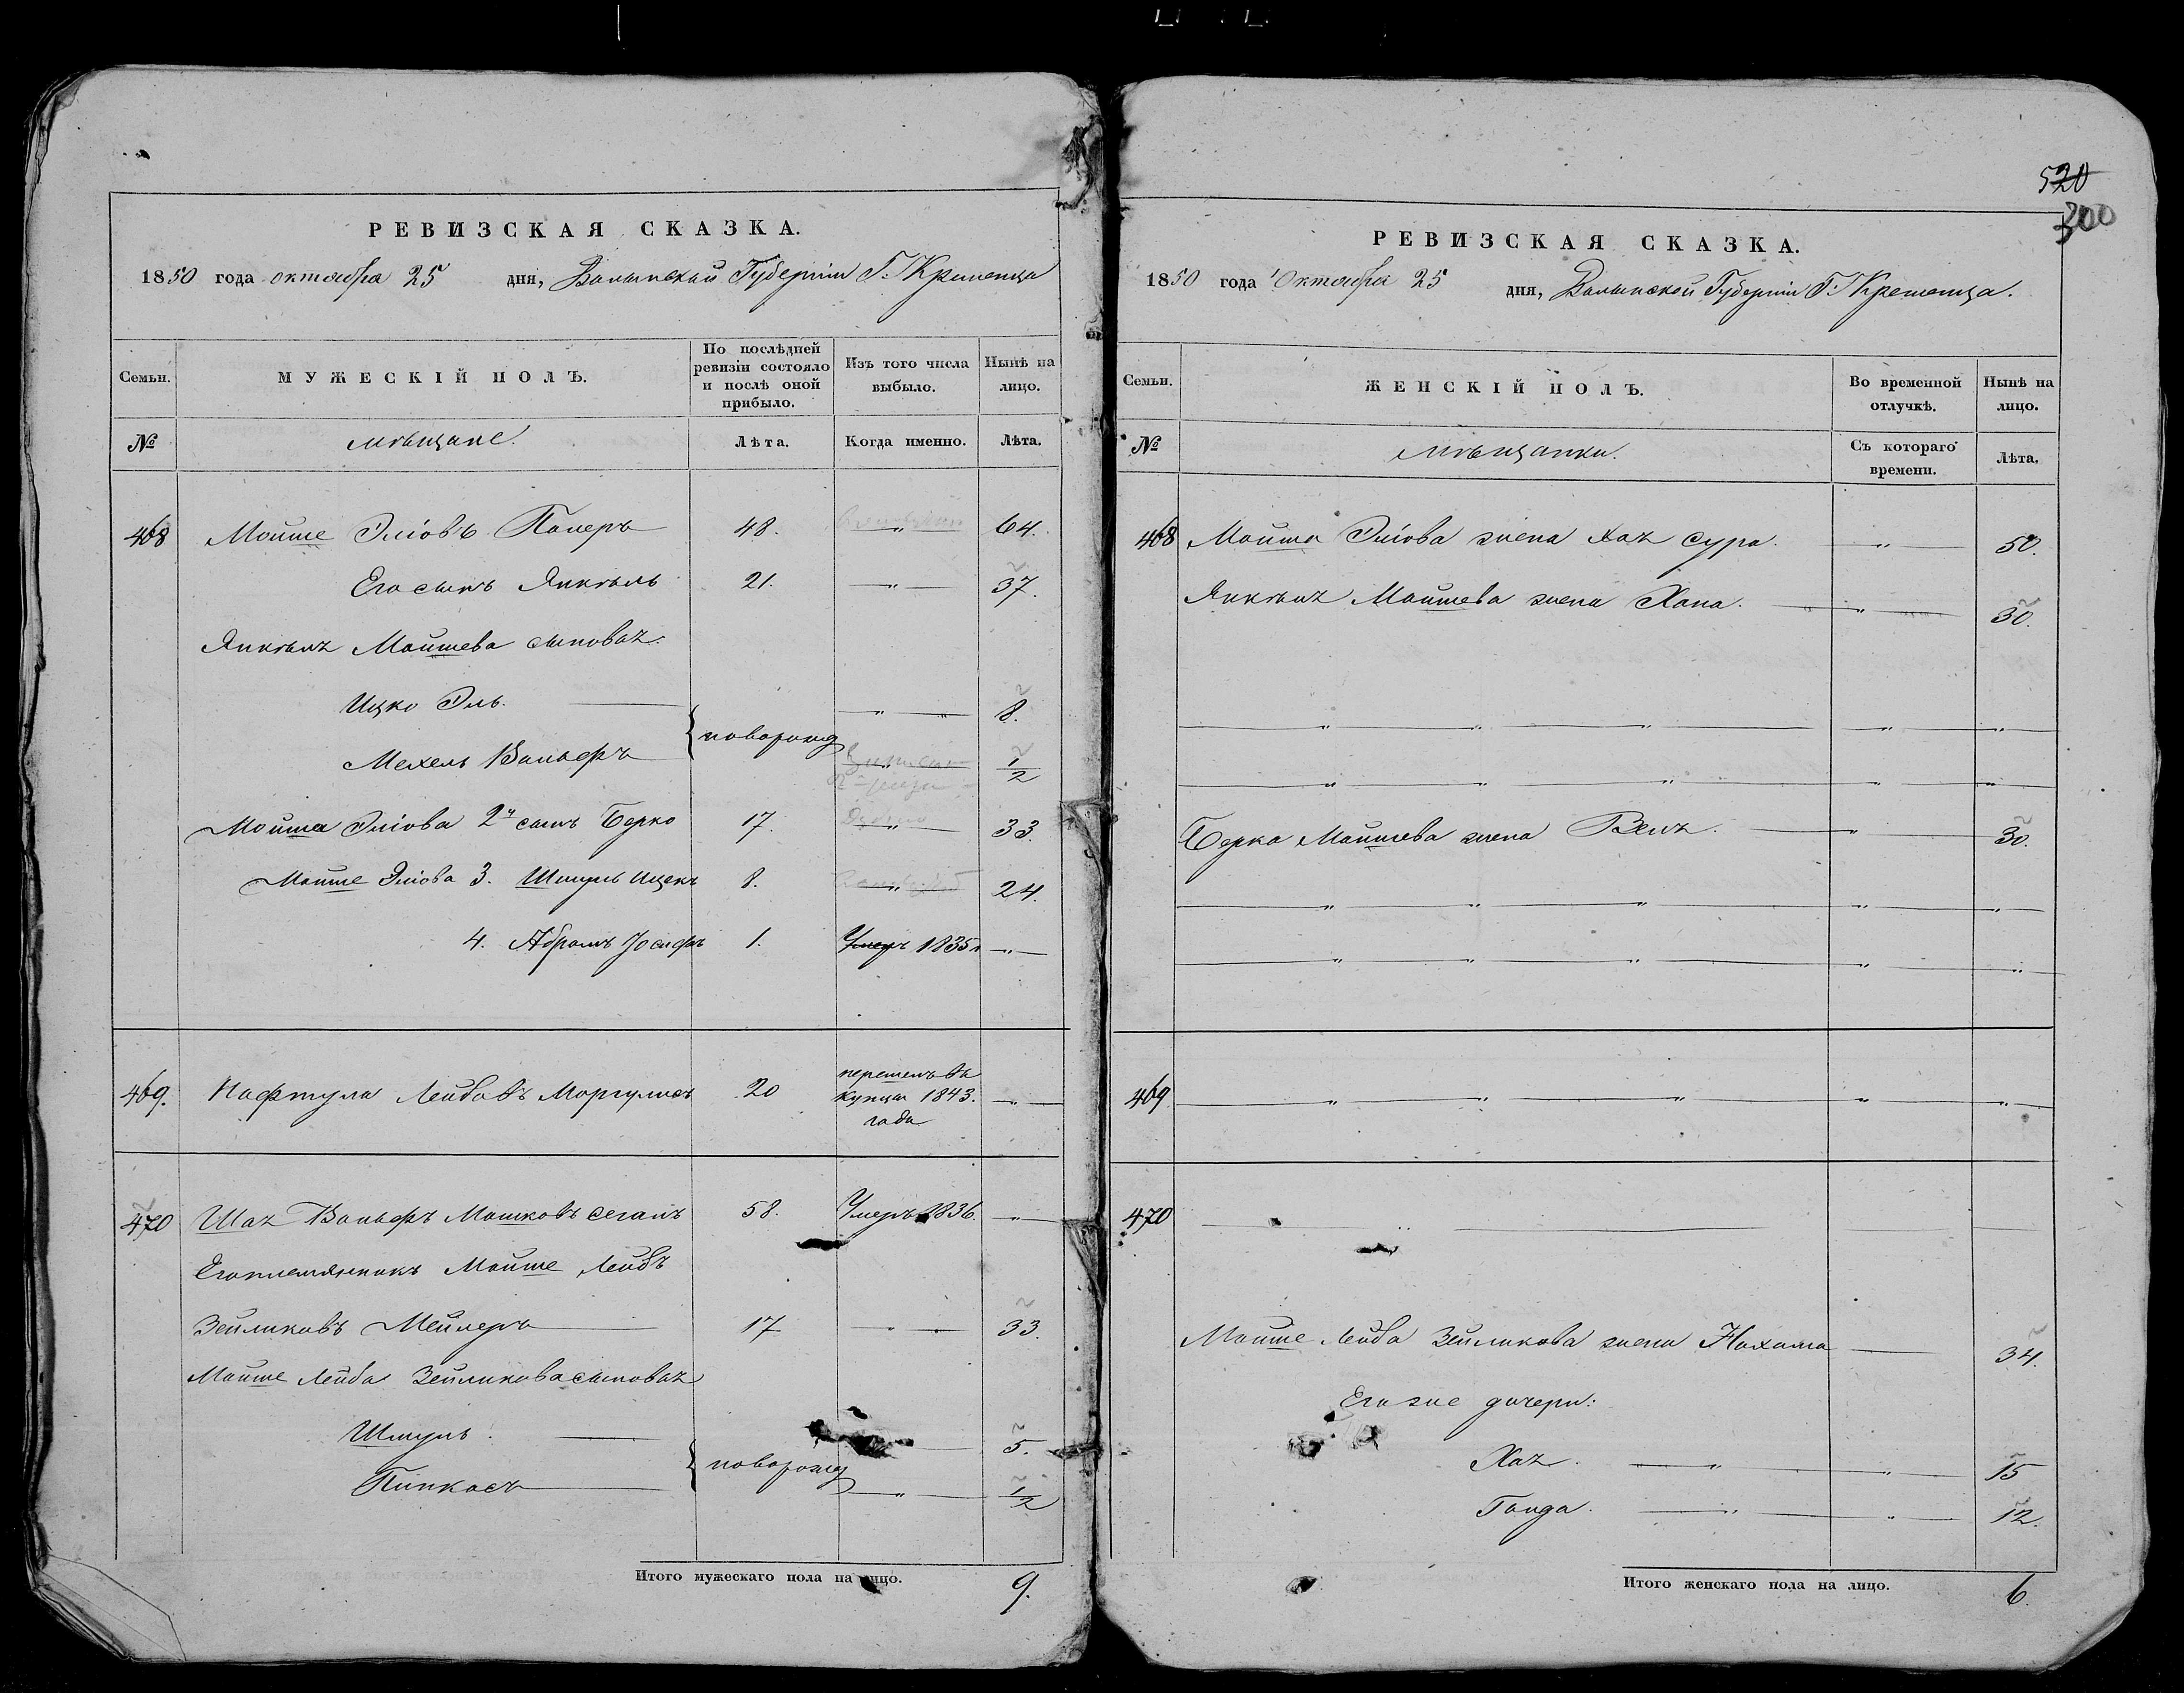 РЕВИЗСКАЯ СКАЗКА.
1850 года октября 25 дня, Волынской Губернии Г. Кременца
Семьи.
МУЖЕСКІЙ ПОЛЪ.
По послѣдней ревизіи состояло и послѣ оной прибыло.
Изъ того числа выбыло.
Нынѣ на лицо.
№
мѣщане.
Лѣта.
Когда именно.
Лѣта.
468 Мойше Эліовъ 48. " 64.
Его сынъ Янкѣль 21. " 37.
Янкѣля Мойшева сыновья:
Ицко Эль. " " 8.
новорожд
Мехель Вольфъ " 1/2
Мойша Эліова 2й сынъ Берко 17. " 33.
Мойше Эліова 3. Шмуль Ицекъ 8. " 24.
4. Абрамъ Іосифъ 1. Умеръ 1835 г "
469. Нафтула Лейбовъ Моргулисъ 20 перешелъ въ купцы 1843. года "
470 Шая Вольфъ Мошковъ Сегалъ 58. Умеръ 1836. "
Его племянникъ Мойше Лейбъ
Зейликовъ Мейлеръ 17 " " 33.
Мойше Лейба Зейликова сыновья
Шмуль. 5.
новорожд
Пинкасъ " 1/2
Итого мужескаго пола на лицо. 9.
520
300
РЕВИЗСКАЯ СКАЗКА.
1850 года Октября 25 дня, Волынской Губерніи Г. Кременца.
Семьи.
ЖЕНСКІЙ ПОЛЪ.
Во временной отлучкѣ.
Нынѣ на лицо.
№
мѣщанки.
Съ котораго времени.
Лѣта.
468 Мойша Эліова жена Хая Сура. " 50.
Янкѣля Мойшева жена Хана. " 30.
" " " " "
" " " " "
Берка Мойшева жена Бейля. " 30.
" " " " "
" " " " "
469 " " " " "
470 "
Мойше Лейба Зейликова жена Нахама 34.
Его же дочери:
Хая. " " 15
Гольда. " " 12.
Итого женскаго пола на лицо. 6.